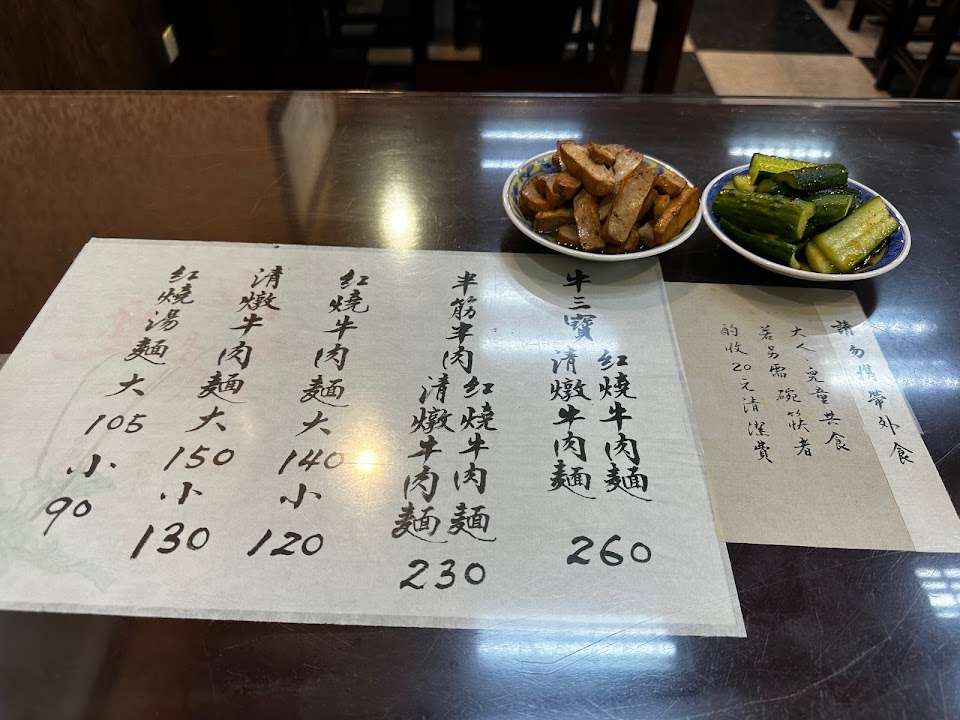 牛三寶
紅燒牛肉麵
清燉牛肉麵
260
半筋半肉
紅燒牛肉麵
清燉牛肉麵
230
紅燒牛肉麵大
140
小
120
清燉牛肉麵大
150
小
130
紅燒湯麵大
105
小
90
請勿攜帶外食
大人、兒童共食
若另需碗筷者
酌收20元清潔費